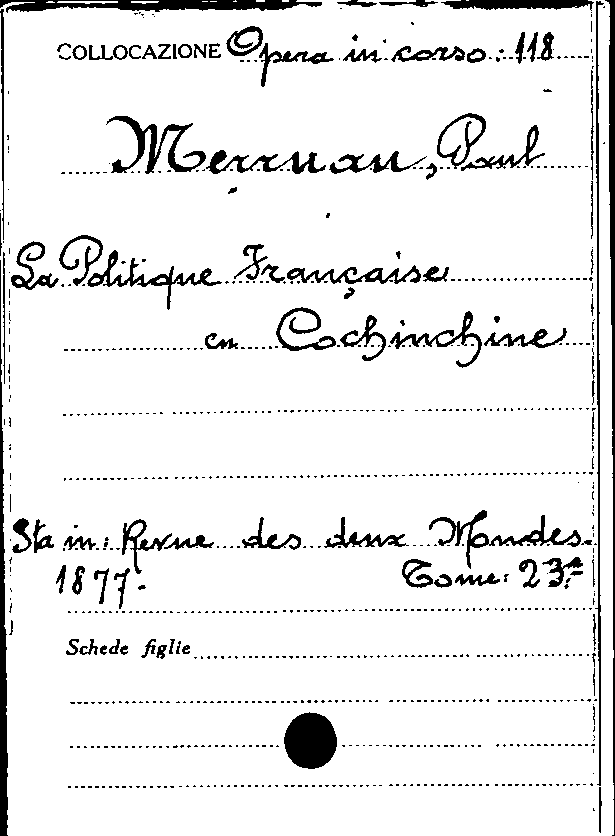 COLLOCAZIONE Opera in corso: 118
Merruau, Paul
La Politique Française
en Cochinchine
Sta in: Revue des deux Mondes.
1877- Tome: 23ª
Schede figlie